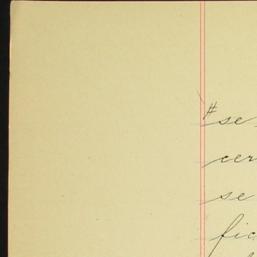 #se
cer
se
fic